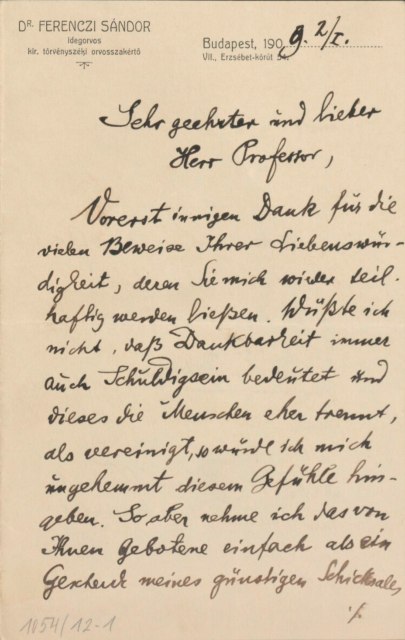 DR. FERENCZI SÁNDOR
idegorvos
kir. törvényszéki orvosszakértő
Budapest, 190 9. 2/I.
VII., Erzsébet-körút 54.
Sehr geehrter und lieber
Herr Professor,
Vorerst innigen Dank für die
vielen Beweise Ihrer Liebenswür-
digkeit, deren Sie mich wieder teil-
haftig werden ließen. Wüßte ich
nicht, daß Dankbarkeit immer
auch Schuldigsein bedeutet und
dieses die Menschen eher trennt,
als vereinigt, so würde ich mich
ungehemmt diesem Gefühle hin-
geben. So aber nehme ich das von
Ihnen Gebotene einfach als ein
Geschenk meines günstigen Schicksales
./.
1054/12-1